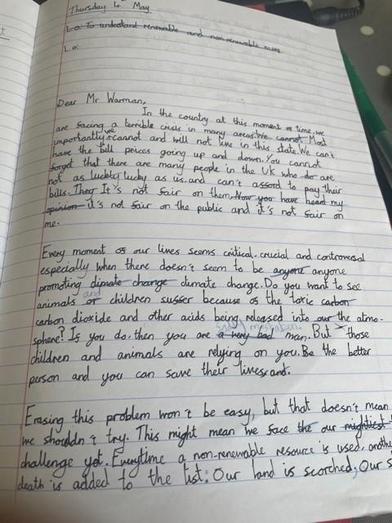 Thursday 4th May
L.o: To understand renewable and non-renewable
L.o:
Dear Mr Warman,
In the country at this moment of time, we
are facing a terrible crisis in many areas. We cannot Most
importantly we cannot and will not live in this state. We can't
have the bill prices going up and down. You cannot
forget that there are many people in the UK who are
not as luckly lucky as us and can't afford to pay their
bills. They It's not fair on them. Now you have heard my
opinion it's not fair on the public and it's not fair on
me.
Every moment of our lives seems critical, crucial and controversal
especially when there doesn't seem to be anyone anyone
promoting climate change climate change. Do you want to see
animals or and children suffer because of the toxic carbon
carbon dioxide and other acids being released into our the atmo-
sphere? If you do, then you are a very bad man. But those
children and animals are relying on you. Be the better
person and you can save their lives and.
Erasing this problem won't be easy, but that doesn't mean
we shouldn't try. This might mean we face the our mightiest
challenge yet. Everytime a non-renewable resource is used, another
death is added to the list. Our land is scorched, Our